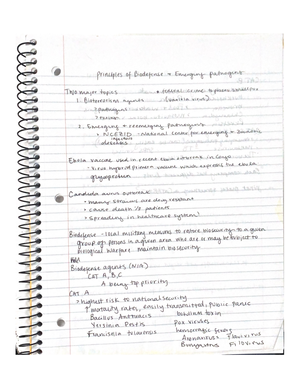 Principles of Biodefense & Emerging pathogens
Two major topics
* federal crime to possess smallpox
1. Bioterrorism agents (variola virus)
* pathogens
* toxins
2. Emerging & reemerging pathogens
* NCEZID - National center for emerging & zoonotic
diseases
Ebola vaccine used in recent ebola outbreaks in Congo
* virus hybrid protein vaccine which express the ebola
glycoprotein
Candida auris outbreak
* many strains are drug resistant
* cause death % patients
* Spreading in healthcare system!
Biodefense - uses military measures to restore biosecurity to a given
group of persons in a given area who are or may be subject to
biological warfare - maintain biosecurity
Biodefense agents (NIH)
CAT A, B, C
A being top priority
CAT A
* highest risk to national security
* ↑ mortality rates, easily transmitted, public panic
Bacillus Anthracis
botulism toxin
Yersinia Pestis
pox viruses
Francisella tularensis
hemorrhagic fevers
Arenavirus Flavivirus
Bunyavirus Filovirus